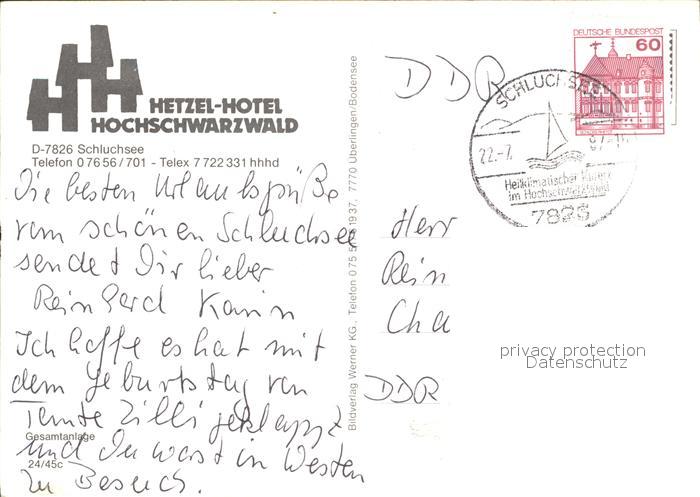 HETZEL-HOTEL
HOCHSCHWARZWALD
D-7826 Schluchsee
Telefon 0 76 56 / 701 - Telex 7 722 331 hhhd
Die besten Urlaubsgrüße
vom schönen Schluchsee
sendet Dir lieber
Reinhard Karin
Ich hoffe es hat mit
dem Geburtstag von
Tante Zilli geklappt
und Du warst in Westen
zu Besuch.
Gesamtanlage
24/45c
Bildverlag Werner KG., Telefon 0 75 51937, 7770 Überlingen/Bodensee
DDR
DEUTSCHE BUNDESPOST
60
SCHLUCHSEE
22.-7.
Heilklimatischer Kurort
im Hochschwarzwald
Herr
Rein
Cha
DDR
privacy protection
Datenschutz